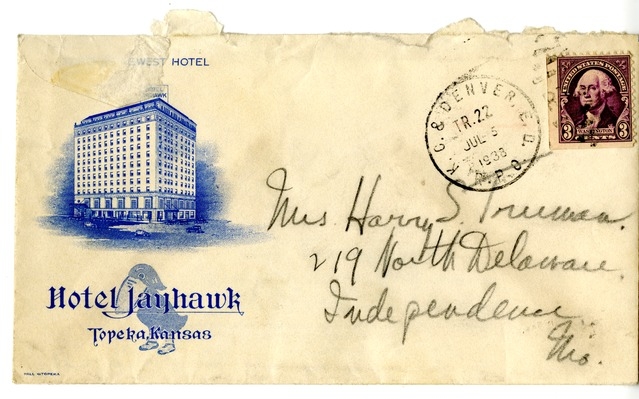 EWEST HOTEL
HAWK
Hotel Jayhawk
Topeka, Kansas
K.C. & DENVER. E.D.
TR.22
JUL 5
1933
R.P.O.
UNITED STATES POSTAGE
WASHINGTON
3 CENTS 3
Mrs Harry S. Truman.
219 North Delaware.
Independence
Mo.